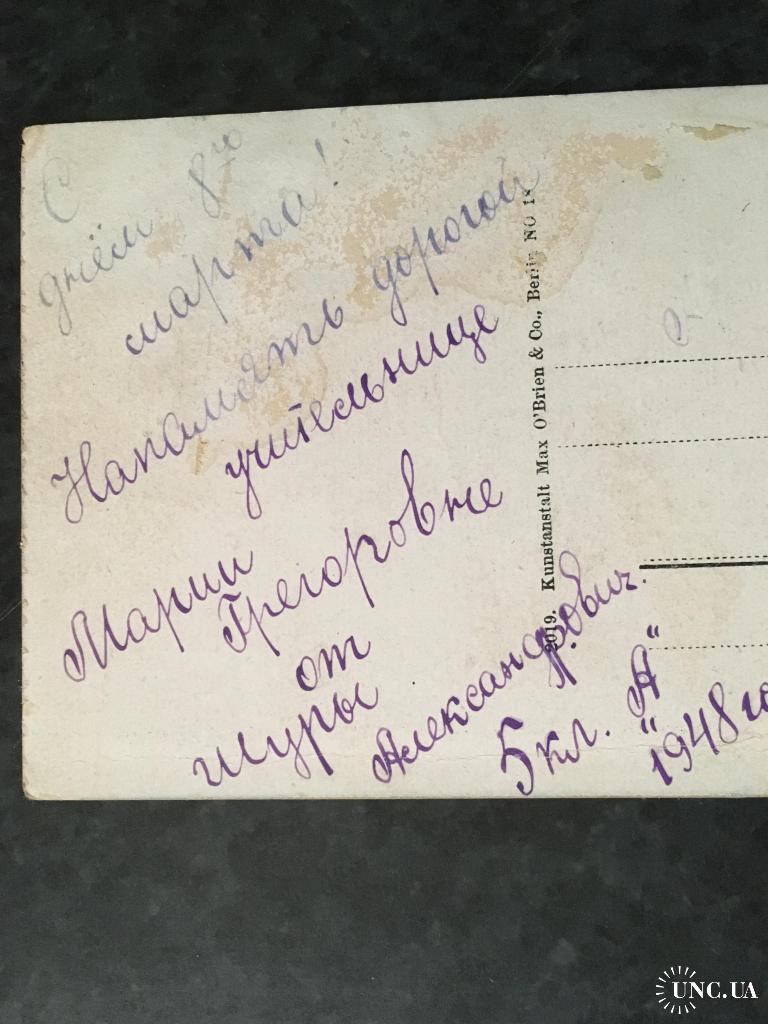 С
днём 8го
марта!
Напамять дорогой
учительнице
Марии
Грегоровне
от
Шуры
Александрович.
5 кл. "А"
1948 го
2019. Kunstanstalt Max O'Brien & Co., Berlin NO 18
UNC.UA